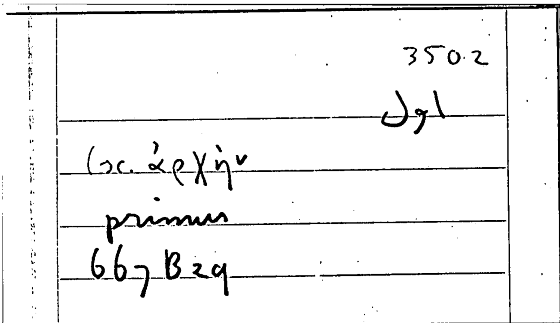 3502
(sc. ἀρχὴν
primus
667 B 29